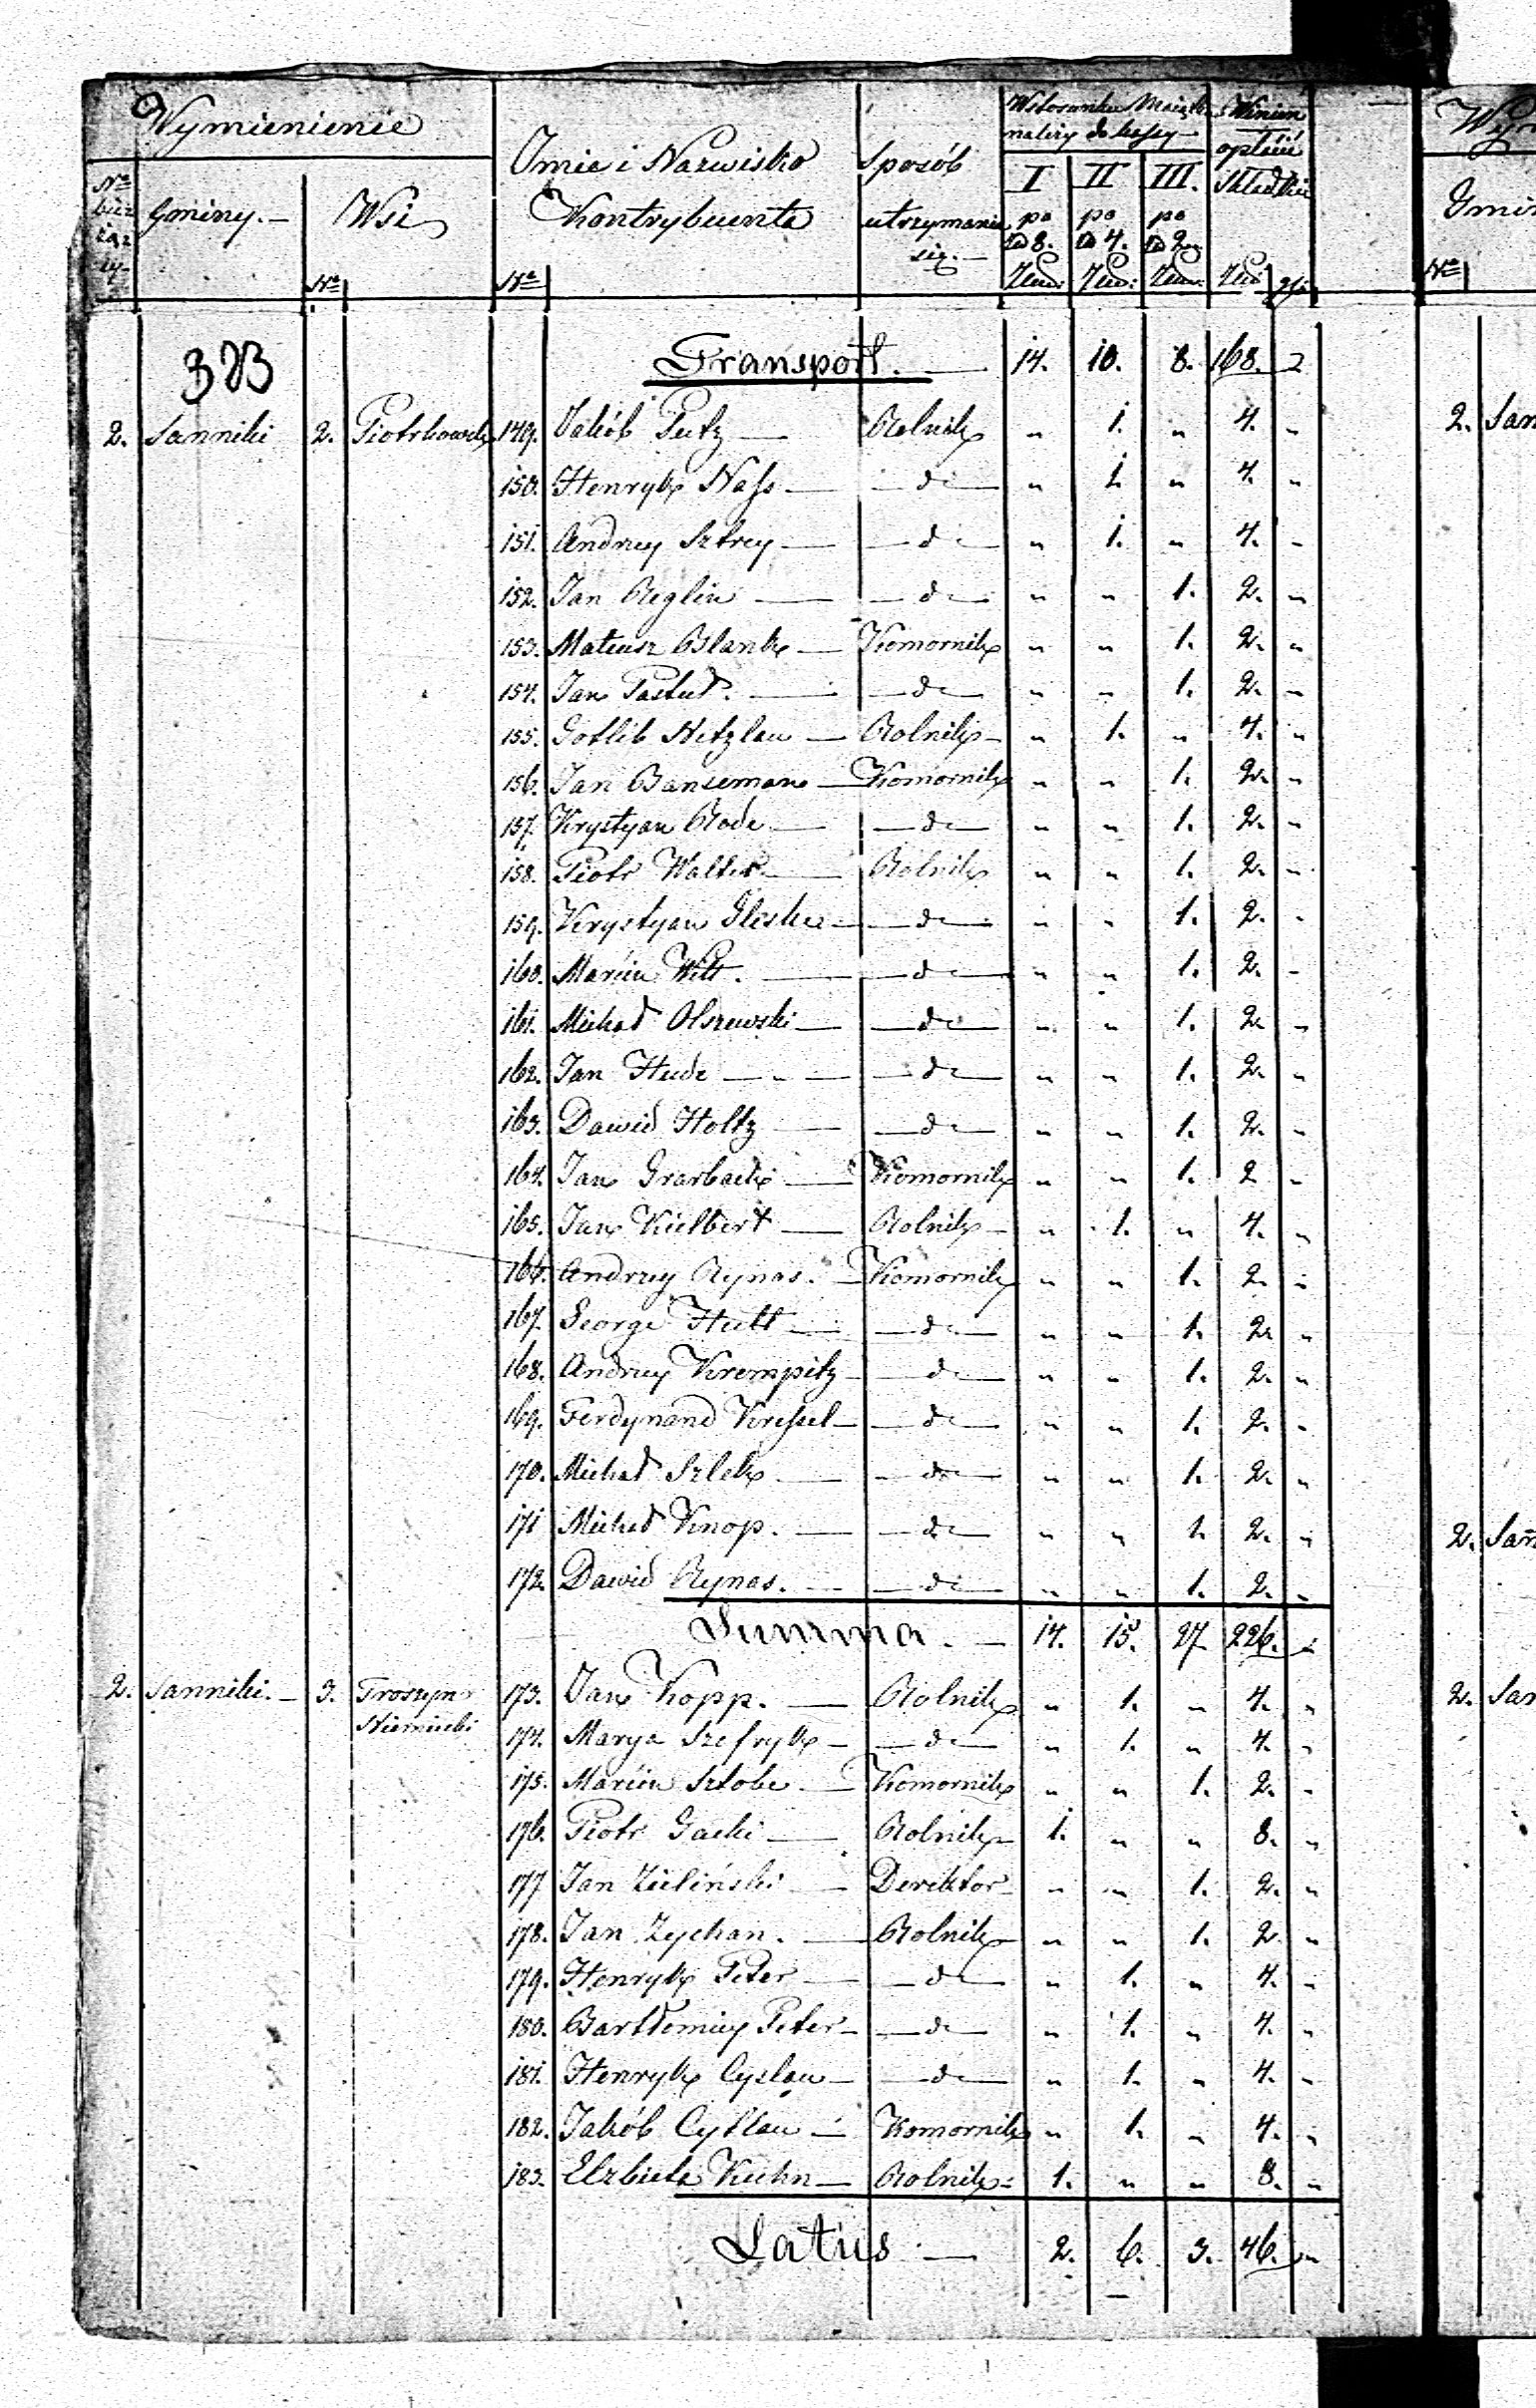 Wymienienie
Imie i Nazwisko Kontrybuenta
Sposób utrzymania się. —
W stosunku Maiątku należy do klassy —
Winien opłacić składkie
Nro bieżący
Gminy. — Wsi
I II III.
po po po
8. 4. 2.
Nro Nro
383 Transport. — 14. 10. 8. 168. "
2. Sanniki 2. Piotrkowek 149. Jakób Putz — Rolnik " 1. " 4. "
150. Henryk Nass — — do — " 1. " 4. "
151. Andrzey Sztrey — — do — " 1. " 4. "
152. Jan Reglin — — do — " " 1. 2. "
153. Mateusz Blank — Komornik " " 1. 2. "
154. Jan Pastud. — — do — " " 1. 2. "
155. Gotlib Netzlau — Rolnik — " 1. " 4. "
156. Jan Banseman — Komornik " " 1. 2. "
157. Krystyan Rode — — do — " " 1. 2. "
158. Piotr Walter — Rolnik " " 1. 2. "
159. Krystyan Gleske — — do — " " 1. 2. "
160. Marcin Witt. — — do — " " 1. 2. "
161. Michał Olszewski — — do — " " 1. 2. "
162. Jan Hude — " — — do — " " 1. 2. "
163. Dawid Holtz — — do — " " 1. 2. "
164. Jan — Komornik " " 1. 2 "
165. Jan Kielbert — Rolnik — " 1. " 4. "
166. Andrzey Rynas. — Komornik " " 1. 2. "
167. George Hutt — — do — " " 1. 2. "
168. Andrzey Krempitz — do — " " 1. 2. "
169. Ferdynand Kressel — — do — " " 1. 2. "
170. Michał Szlek — — do — " " 1. 2. "
171 Michał Knop. — — do — " " 1. 2. "
172. Dawid Rynas. — — do — " " 1. 2. "
Summa. — 14. 15. 27. 226. "
2. Sanniki. — 3. Troszyn 173. Jan Kopp. — Rolnik " 1. " 4. "
Niemiecki 174. Marya Szefryk — — do — " 1. " 4. "
175. Marcin Sztobe — Komornik " " 1. 2. "
176. Piotr Gacki — Rolnik — 1. " " 8. "
177 Jan Zieliński — Derektor — " " 1. 2. "
178. Jan Zychan. — Rolnik — " " 1. 2. "
179. Henryk Peter — — do — " 1. " 4. "
180. Bartłomiey Peter — — do — " 1. " 4. "
181. Henryk Cyslau — — do — " 1. " 4. "
182. Jakób Cytlau — Komornik " 1. " 4. "
183. Elzbieta Kuhn — Rolnik — 1. " " 8. "
Latus — 2. 6. 3. 46. "
Nro
2. San
2. San
2. San